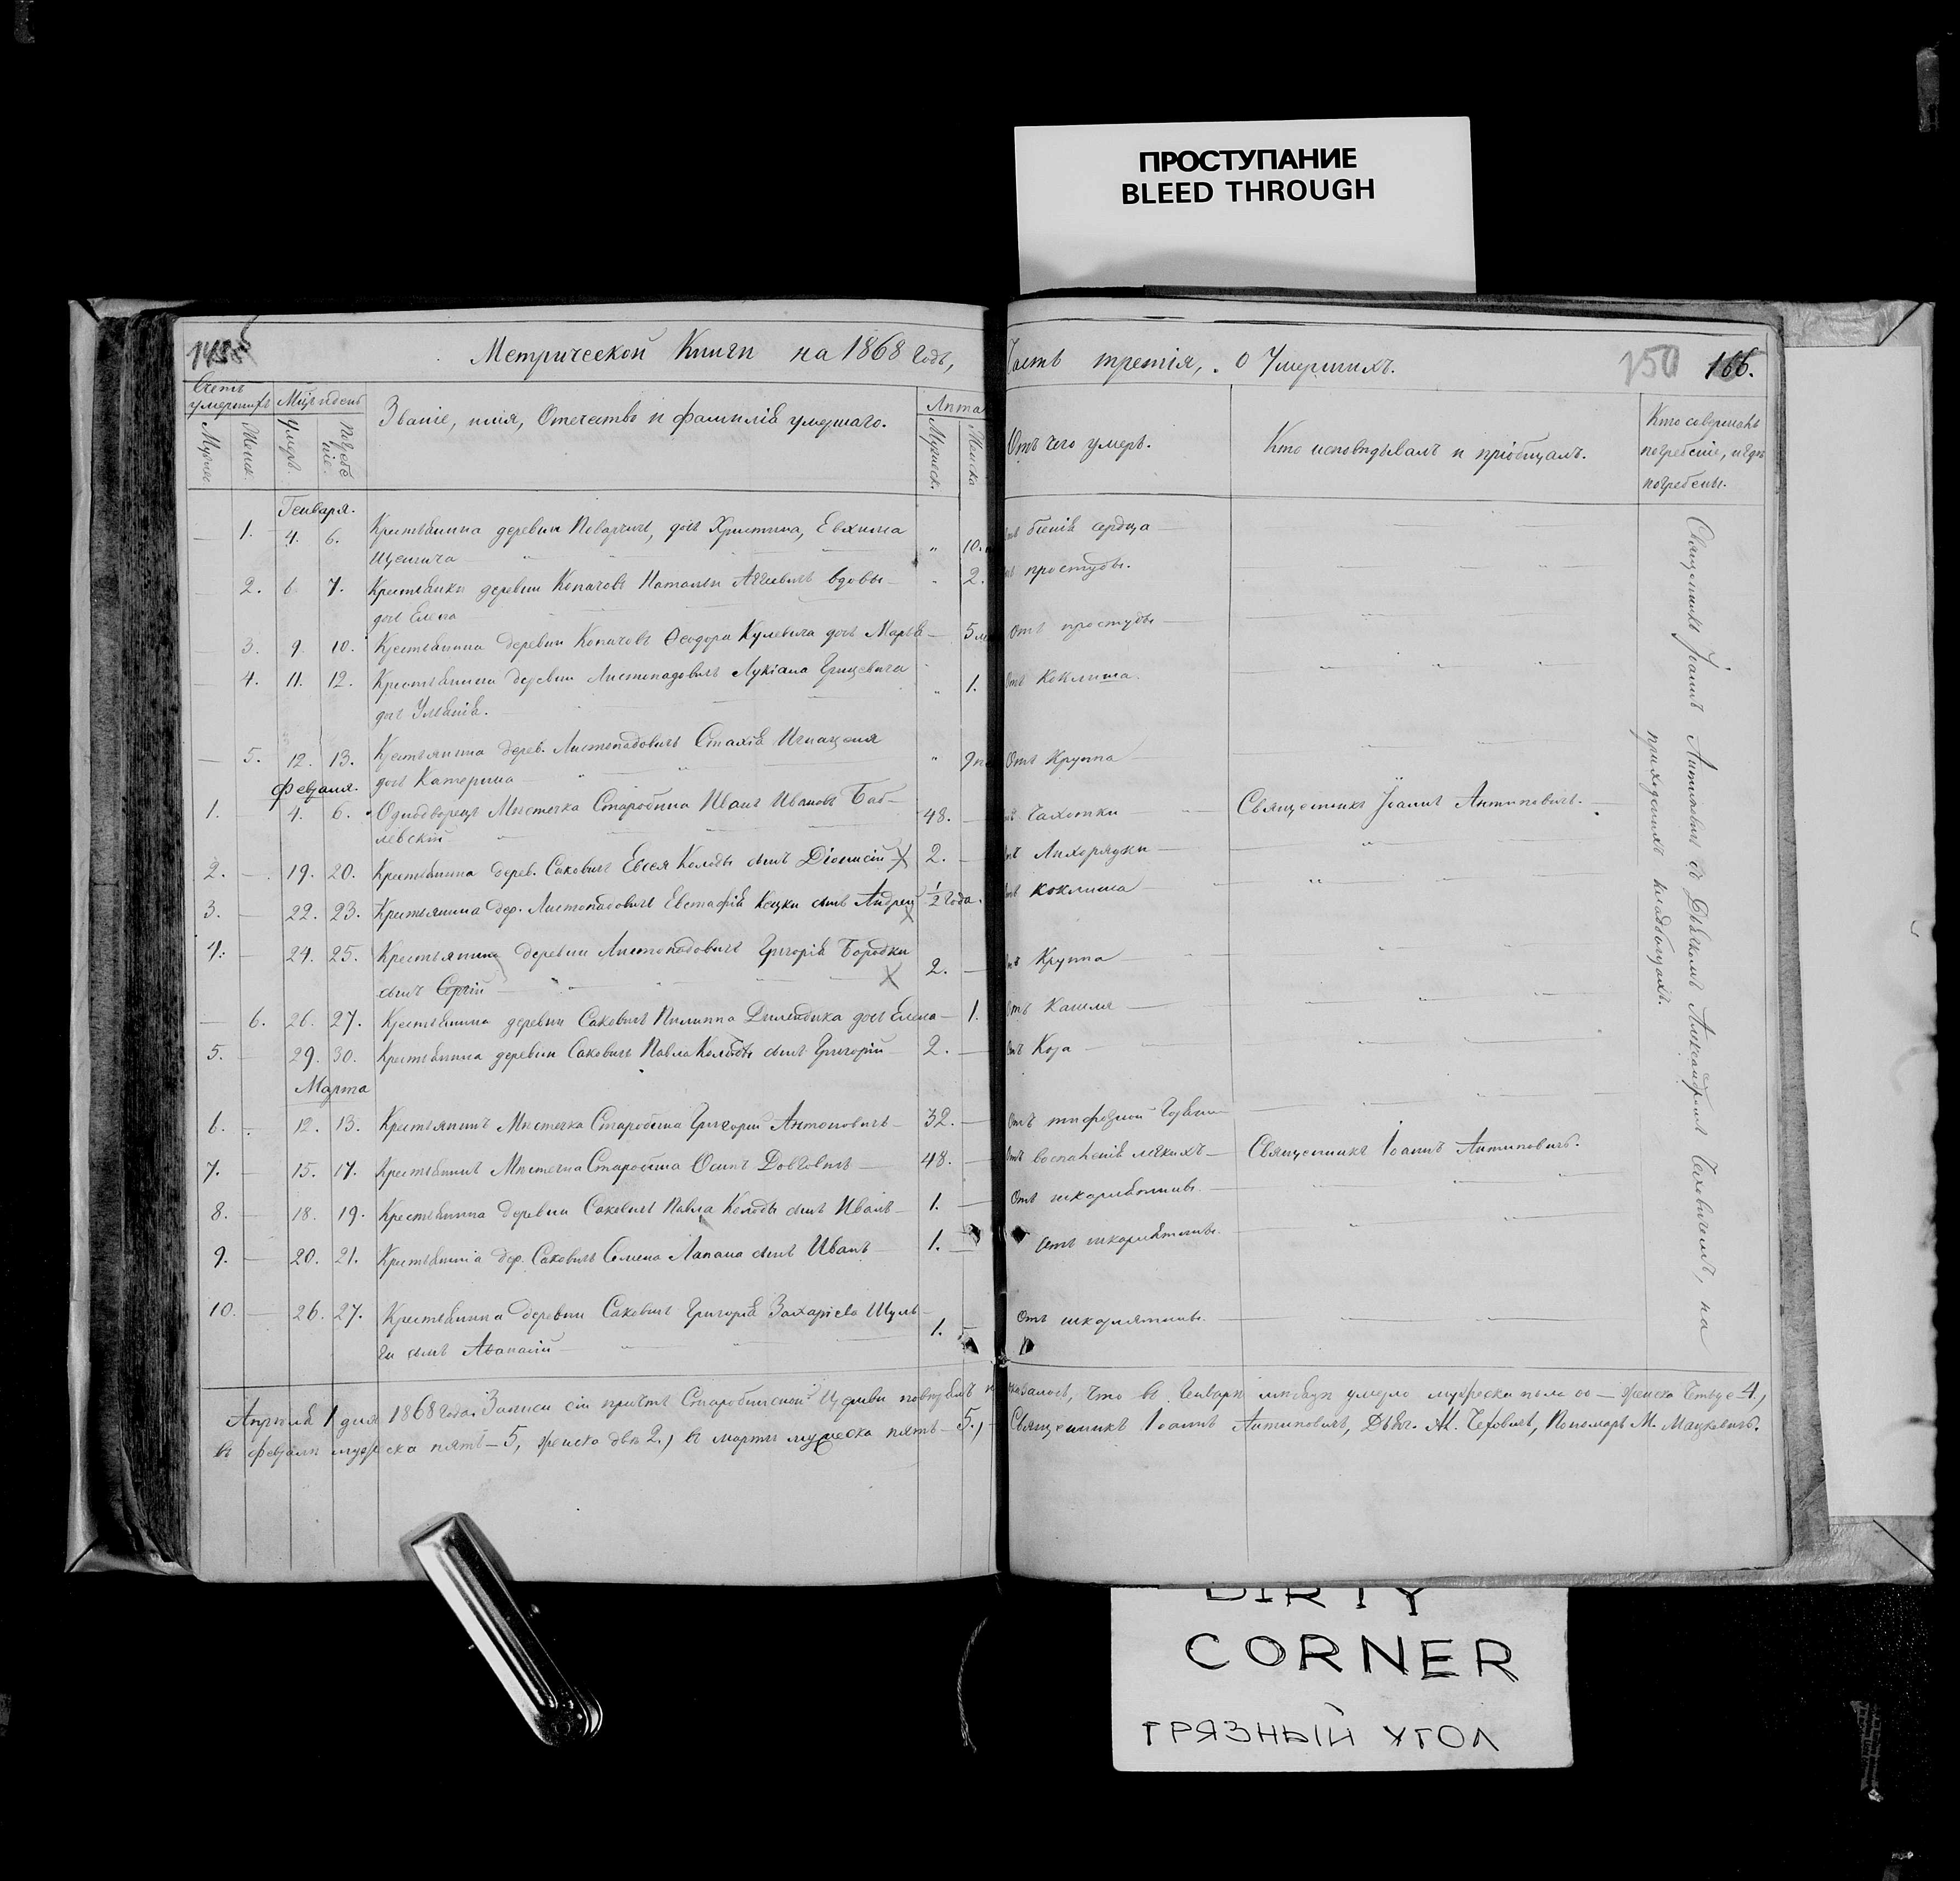 ПРОСТУПАНИЕ
BLEED THROUGH
Метрической Книги на 1868 годъ,
Часть третія, о Умершихъ.
150 166.
Счетъ умершихъ
Мцъ и день
Званіе, имя, Отчество и фамилія умершаго.
Лѣта
Мужес.
Женс.
Умеръ.
Погребеніе.
Мужеск.
Женска
Отъ чего умеръ.
Кто исповѣдывалъ и пріобщалъ.
Кто совершалъ
погребеніе, и гдѣ
погребены.
Генваря.
1. 4. 6. Крестьянина деревни дочь Христина, Евхима " 10. біенія сердца
2. 6 7. Крестьянки деревни Копачовъ Натальи вдовы 2. простуды.
дочь Елена
3. 9. 10. Крестьянина деревни Копачовъ Ѳеодора Кулевича дочь Марья 5 Отъ простуды
4. 11. 12. Крестьянина деревни Листопадовичъ Лукіана Грицевича " 1. Отъ Коклюша.
дочь Ульянія.
5. 12. 13. Крестьянина дерев. Листопадовичъ Стахія " 9 Отъ Круппа
дочь Катерина
Февраля.
1. 4. 6. Однодворецъ Мѣстечка Старобина Иванъ Ивановъ 48. Чахотки Священникъ Іоаннъ Антиповичъ.
левскій
2. 19. 20. Крестьянина дерев. Саковичъ Евсея Колоды сынъ Діонисій 2. Лихорадки
3. 22. 23. Крестьянина дер. Листопадовичъ Евстафія Кецки сынъ Андрей 1/2 года. коклюша
4. 24. 25. Крестьянина деревни Листопадовичъ Григорія Бородки 2. Круппа
сынъ Сергій
6. 26. 27. Крестьянина деревни Саковичъ Филиппа дочь Елена 1. Отъ Кашля
5. 29. 30. Крестьянина деревни Саковичъ Павла Колоды сынъ Григорій 2. Отъ
Марта
6. 12. 13. Крестьянинъ Мѣстечка Старобина Григорій Антоновичъ 32. Отъ тифозной
7. 15. 17. Крестьянинъ Мѣстечка Старобина Осипъ 48. Отъ воспаленія легкихъ Священникъ Іоаннъ Антиповичъ.
8. 18. 19. Крестьянина деревни Саковичъ Павла Колоды сынъ Иванъ 1. Отъ шкарлятины.
9. 20. 21. Крестьянина дер. Саковичъ Семена Лапана сынъ Иванъ 1. Отъ шкарлятины.
10. 26. 27. Крестьянина деревни Саковичъ Григорія Захаріева Шуль- 1. Отъ шкарлятины.
ги сынъ Аѳанасій
Священникъ Іоаннъ Антиповичъ съ Дьячкомъ Александромъ Чеховичемъ, на
приходскихъ кладбищахъ.
Апрѣля 1 дня 1868 года. Записи сіи причтъ Старобинской Церкви повѣрялъ и оказалось, что въ Генварѣ мѣсяцѣ умерло мужеска пола 00 — женска 4,
въ февралѣ мужеска пять — 5, женска двѣ 2, въ мартѣ мужеска пять — 5, Священникъ Іоаннъ Антиповичъ, Дьяч. Ал. Чеховичъ, Пономарь М. Мацкевичъ.
DIRTY
CORNER
ГРЯЗНЫЙ УГОЛ